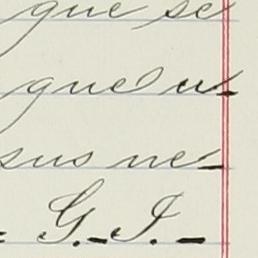 que se
que u-
sus ne-
- G. - I. -